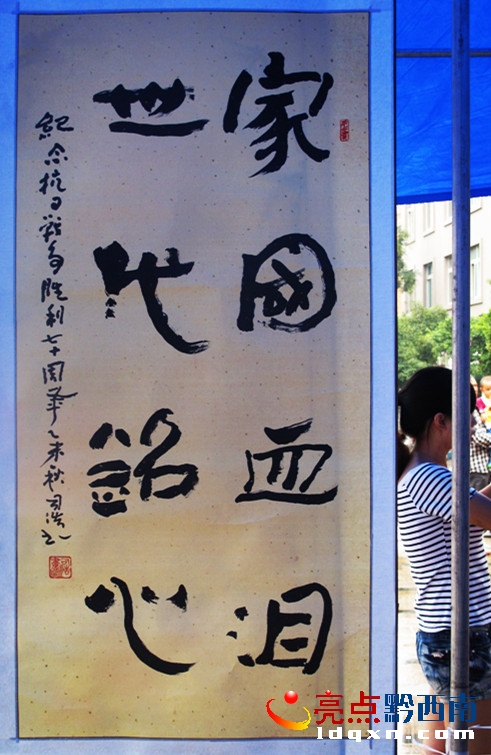 家國血泪
世代銘心
紀念抗日戰爭勝利七十周年乙未秋
亮点黔西南
ldqxn.com